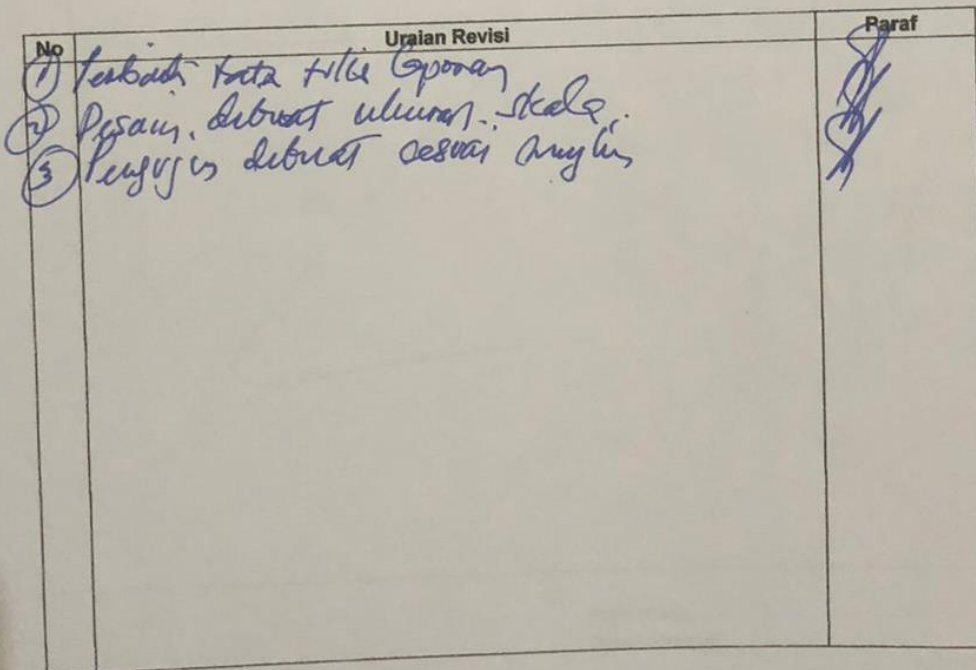 No Uraian Revisi Paraf
1 Perbaiki tata tulis laporan
2 Desain dibuat ukuran skala.
3 Pengujian dibuat sesuai